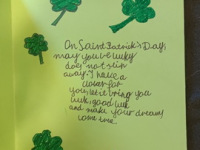 On Saint Patrick's Day,
may your lucky
does not slip
away. I have a
clover for
you, let it bring you
luck, good luck
and make your dreams
come true.